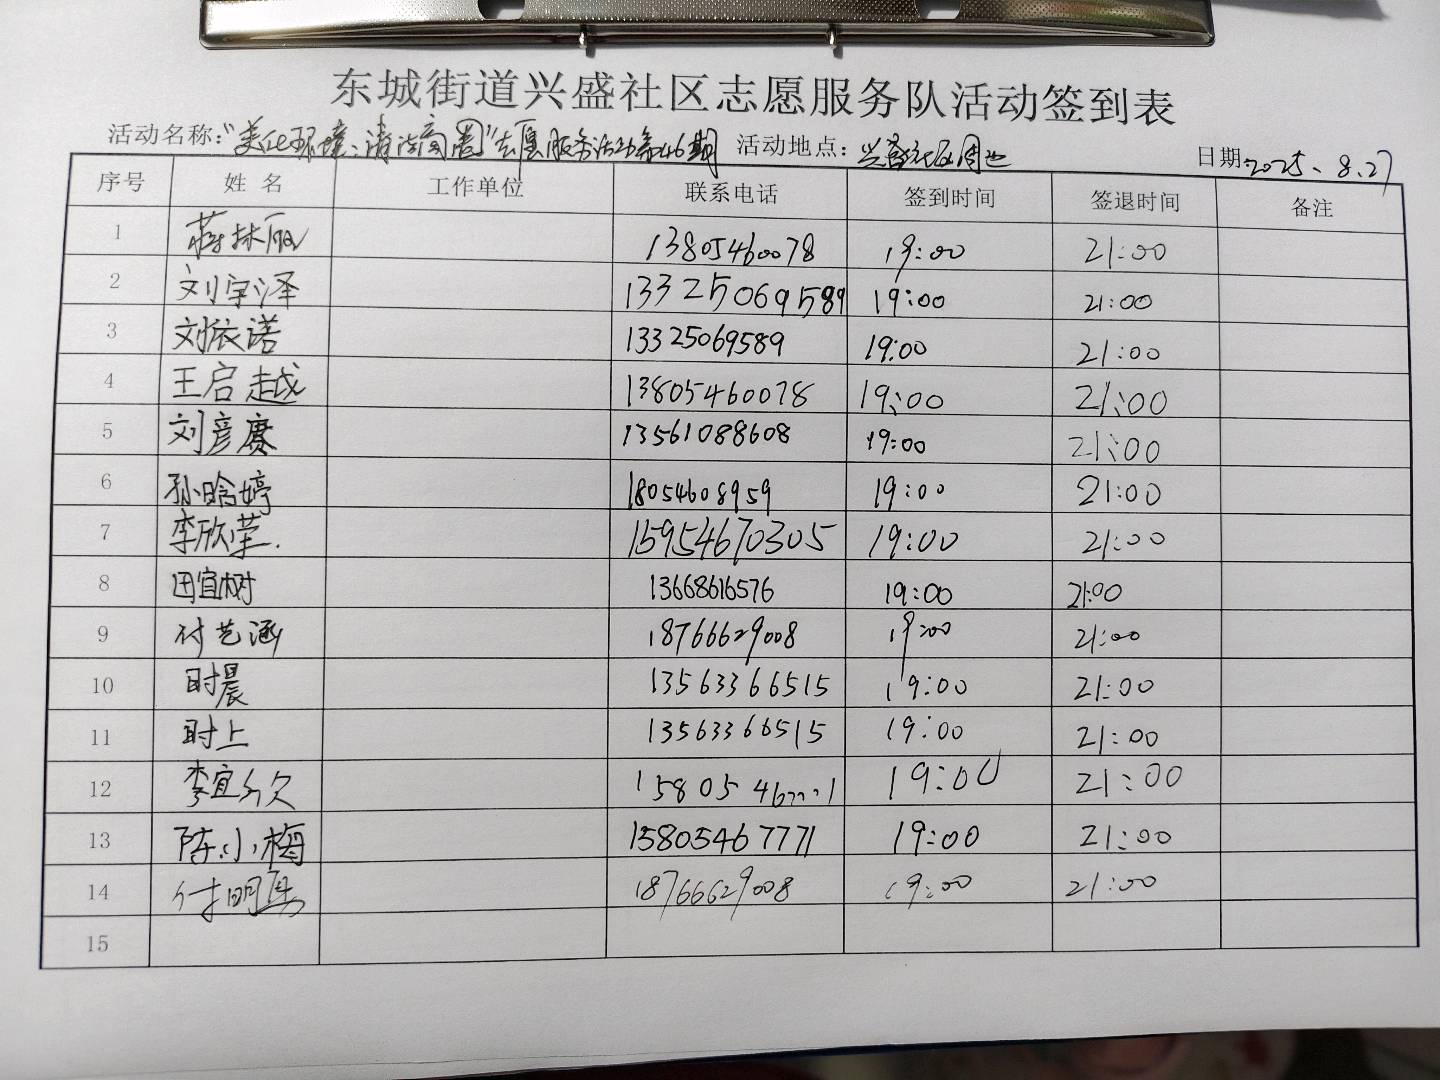 东城街道兴盛社区志愿服务队活动签到表
活动名称:"美化环境、清洁商圈"志愿服务活动第46期 活动地点: 兴盛社区周边 日期:2025、8.27
序号 姓名 工作单位 联系电话 签到时间 签退时间 备注
1 13805460078 19:00 21:00
2 刘宇泽 13325069589 19:00 21:00
3 刘依诺 13325069589 19:00 21:00
4 王启越 13805460078 19:00 21:00
5 刘彦赓 13561088608 19:00 21:00
6 孙晗婷 18054608959 19:00 21:00
7 李欣荣. 15954670305 19:00 21:00
8 田宜树 13668616576 19:00 21:00
9 付艺涵 18766629008 19:00 21:00
10 时晨 13563366515 19:00 21:00
11 时上 13563366515 19:00 21:00
12 李宜 19:00 21:00
13 陈小梅 15805467771 19:00 21:00
14 付明 18766629008 19:00 21:00
15